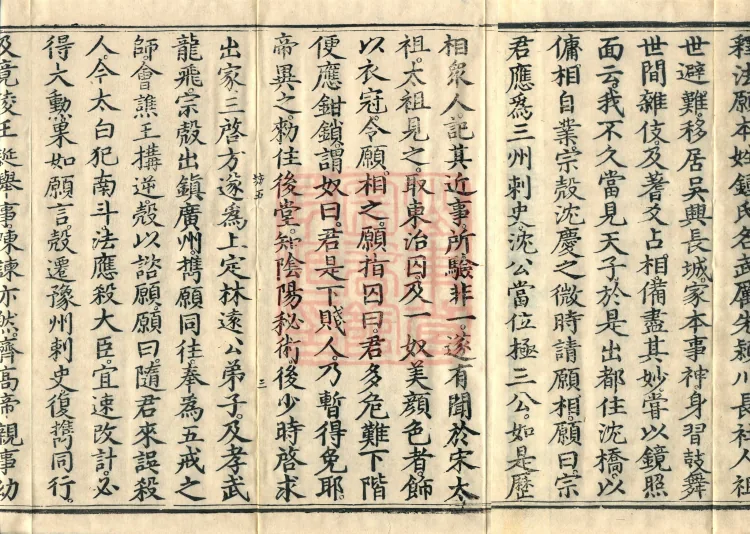 釋法願本姓鍾氏名武厲先潁川長社人祖
世避難移居吳興長城家本事神身習鼓舞
世間雜伎及蓍爻占相備盡其妙甞以鏡照
面云我不久當見天子於是出都住沈橋以
傭相自業宗殻沈慶之微時請願相願曰宗
君應爲三州刺史沈公當位極三公如是歷
相衆人記其近事所驗非一遂有聞於宋太
祖太祖見之取東治囚及一奴美顔色者飾
以衣冠令願相之願指囚曰君多危難下階
便應鉗鎖謂奴曰君是下賤人乃暫得免耶
帝異之勑住後堂知陰陽秘術後少時啓求
坊五
三
出家三啓方遂爲上定林遠公弟子及孝武
龍飛宗殻出鎮廣州攜願同往奉爲五戒之
師會譙王搆逆殻以諮願願曰隨君來誤殺
人今太白犯南斗法應殺大臣宜速改計必
得大勳果如願言殻遷豫州刺史復攜同行
及竟陵王誕舉事陳諫亦然齊高帝親事幼